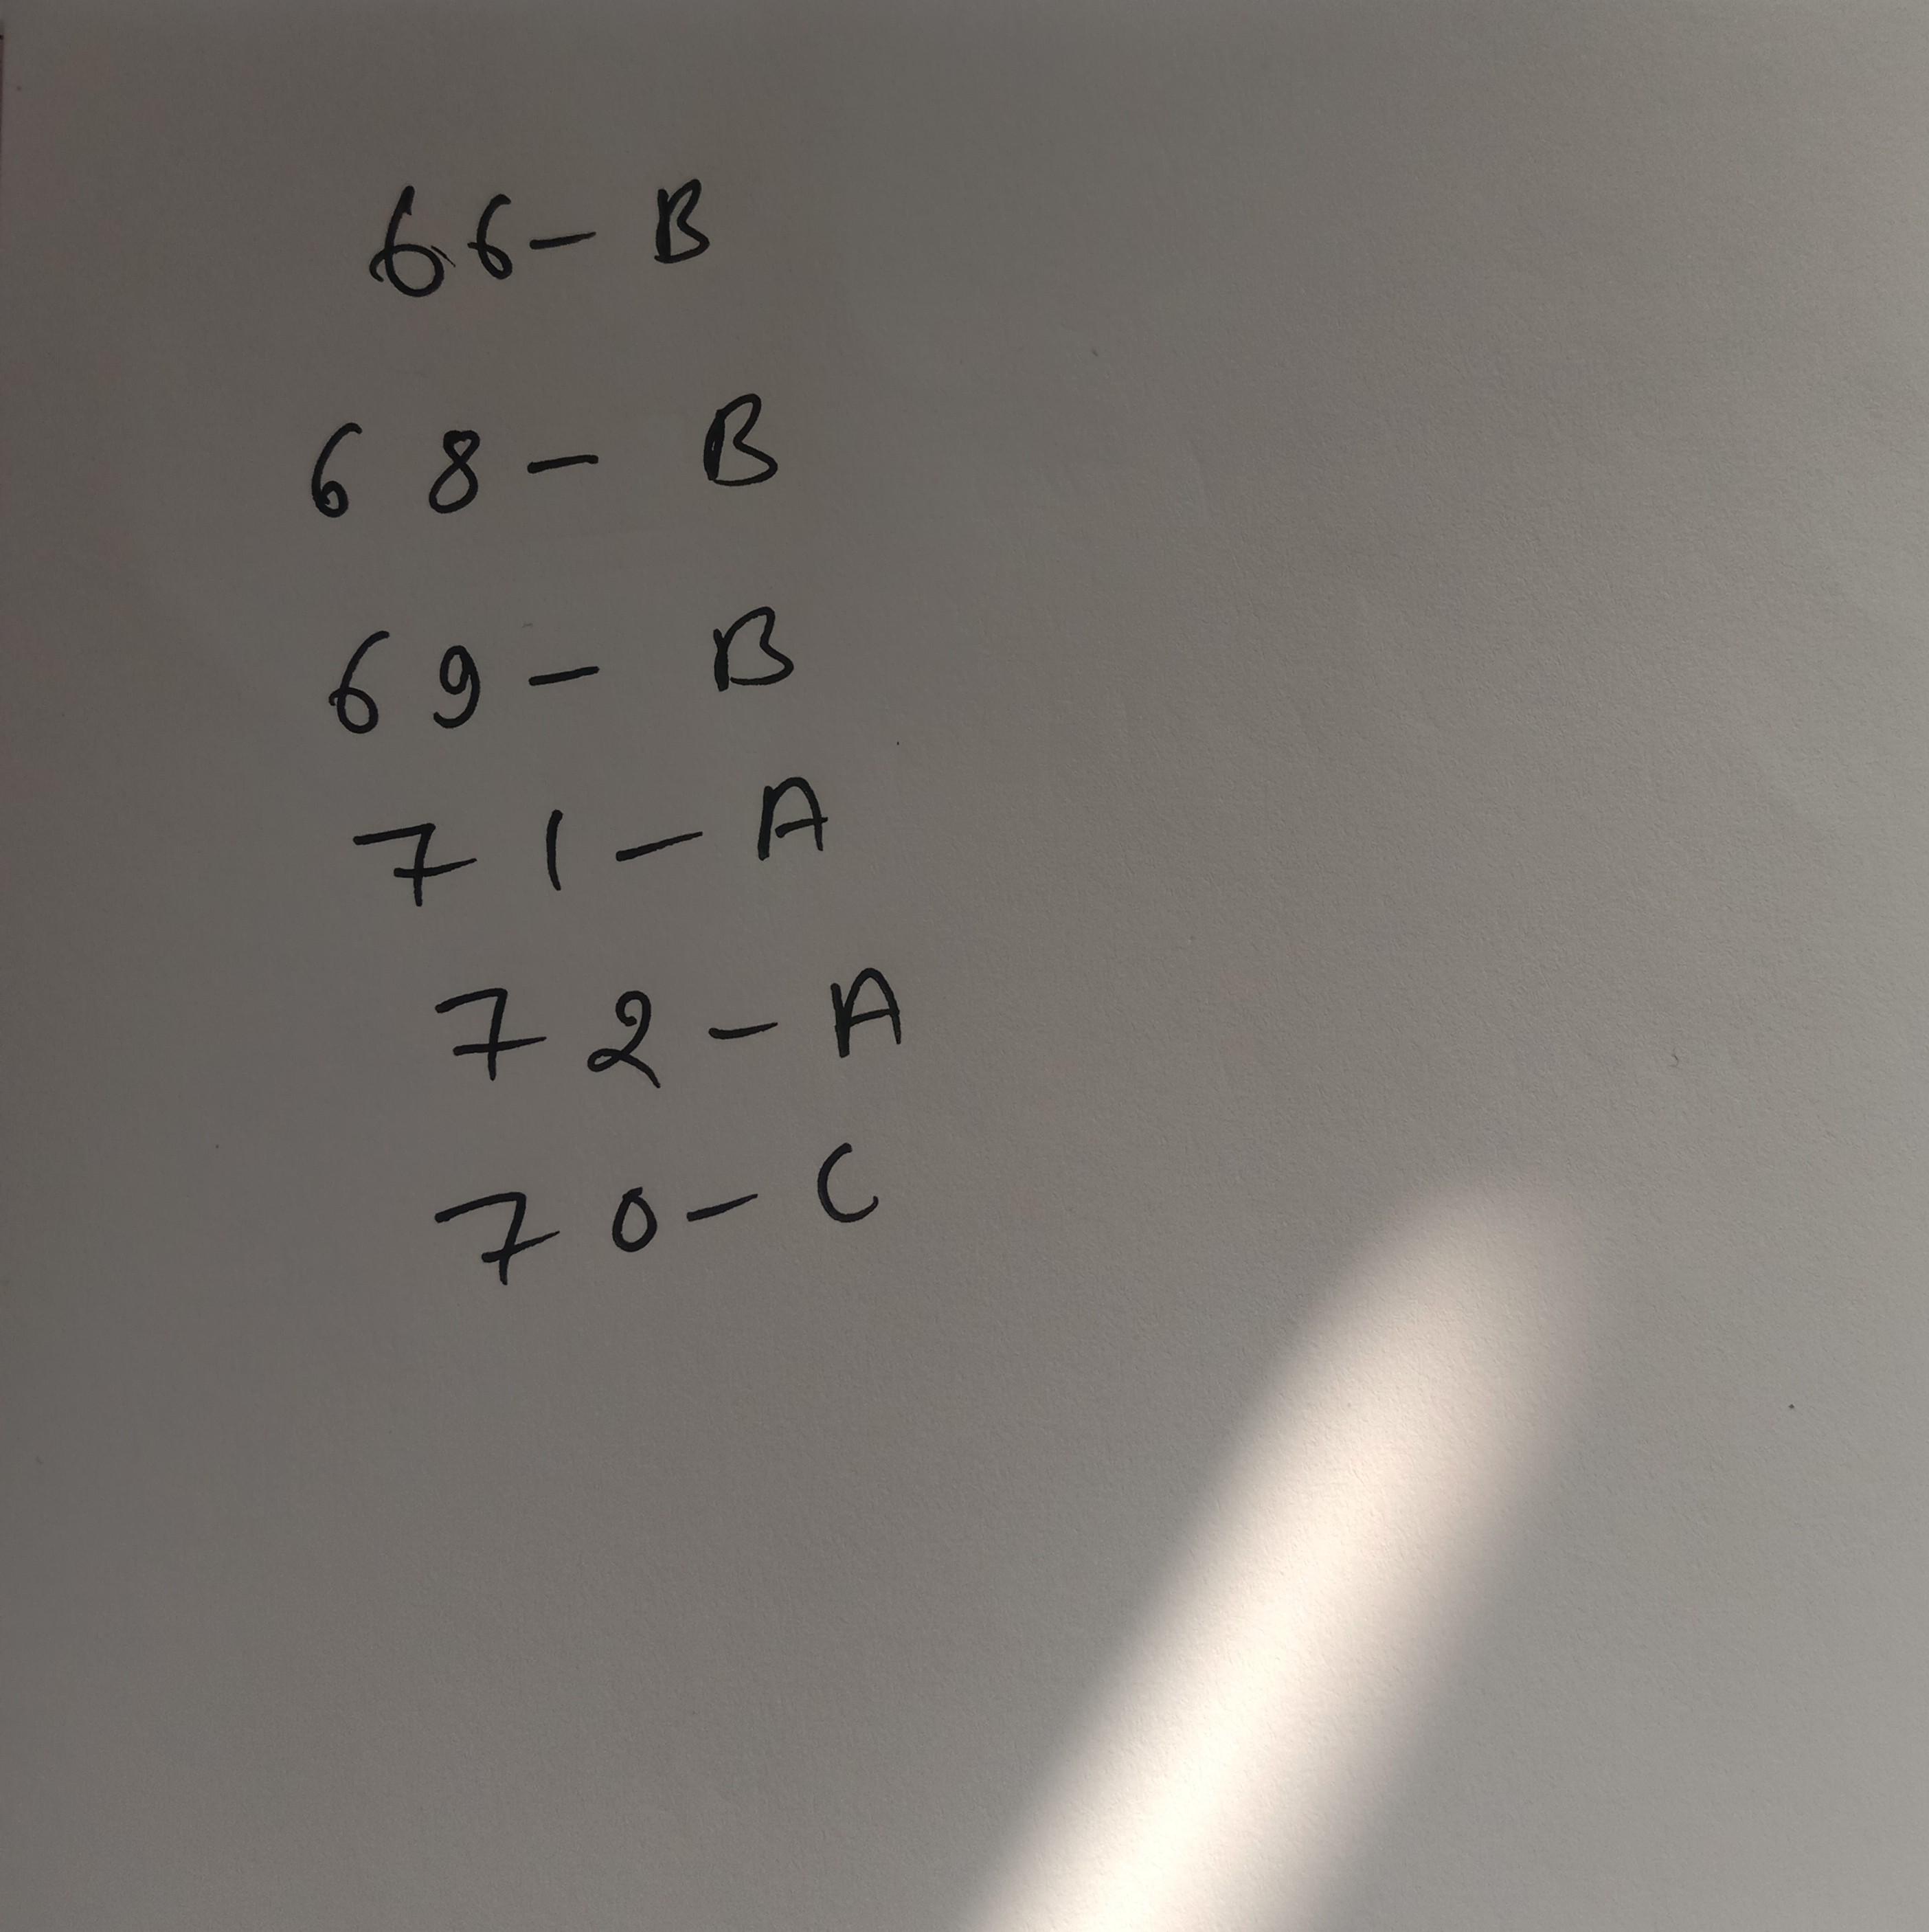 66- B
68- B
69- B
71- A
72- A
70- C